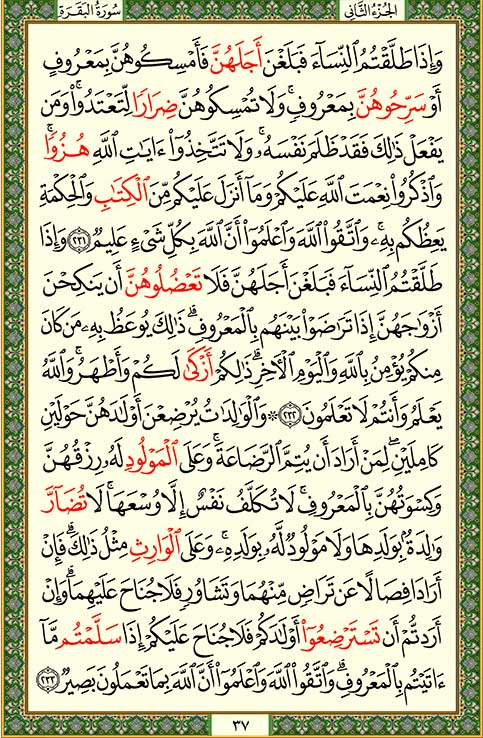 الجزء الثاني سورة البقرة
وَإِذَا طَلَّقْتُمُ ٱلنِّسَآءَ فَبَلَغْنَ أَجَلَهُنَّ فَأَمْسِكُوهُنَّ بِمَعْرُوفٍ
أَوْ سَرِّحُوهُنَّ بِمَعْرُوفٍۚ وَلَا تُمْسِكُوهُنَّ ضِرَارًا لِّتَعْتَدُوا۟ۚ وَمَن
يَفْعَلْ ذَٰلِكَ فَقَدْ ظَلَمَ نَفْسَهُۥۚ وَلَا تَتَّخِذُوٓا۟ ءَايَٰتِ ٱللَّهِ هُزُوًاۚ
وَٱذْكُرُوا۟ نِعْمَتَ ٱللَّهِ عَلَيْكُمْ وَمَآ أَنزَلَ عَلَيْكُم مِّنَ ٱلْكِتَٰبِ وَٱلْحِكْمَةِ
يَعِظُكُم بِهِۦۚ وَٱتَّقُوا۟ ٱللَّهَ وَٱعْلَمُوٓا۟ أَنَّ ٱللَّهَ بِكُلِّ شَىْءٍ عَلِيمٌ ٢٣١ وَإِذَا
طَلَّقْتُمُ ٱلنِّسَآءَ فَبَلَغْنَ أَجَلَهُنَّ فَلَا تَعْضُلُوهُنَّ أَن يَنكِحْنَ
أَزْوَٰجَهُنَّ إِذَا تَرَٰضَوْا۟ بَيْنَهُم بِٱلْمَعْرُوفِۗ ذَٰلِكَ يُوعَظُ بِهِۦ مَن كَانَ
مِنكُمْ يُؤْمِنُ بِٱللَّهِ وَٱلْيَوْمِ ٱلْءَاخِرِۗ ذَٰلِكُمْ أَزْكَىٰ لَكُمْ وَأَطْهَرُۚ وَٱللَّهُ
يَعْلَمُ وَأَنتُمْ لَا تَعْلَمُونَ ٢٣٢ ۞ وَٱلْوَٰلِدَٰتُ يُرْضِعْنَ أَوْلَٰدَهُنَّ حَوْلَيْنِ
كَامِلَيْنِۖ لِمَنْ أَرَادَ أَن يُتِمَّ ٱلرَّضَاعَةَۚ وَعَلَى ٱلْمَوْلُودِ لَهُۥ رِزْقُهُنَّ
وَكِسْوَتُهُنَّ بِٱلْمَعْرُوفِۚ لَا تُكَلَّفُ نَفْسٌ إِلَّا وُسْعَهَاۚ لَا تُضَآرَّ
وَٰلِدَةٌۢ بِوَلَدِهَا وَلَا مَوْلُودٌ لَّهُۥ بِوَلَدِهِۦۚ وَعَلَى ٱلْوَارِثِ مِثْلُ ذَٰلِكَۗ فَإِنْ
أَرَادَا فِصَالًا عَن تَرَاضٍ مِّنْهُمَا وَتَشَاوُرٍ فَلَا جُنَاحَ عَلَيْهِمَاۗ وَإِنْ
أَرَدتُّمْ أَن تَسْتَرْضِعُوٓا۟ أَوْلَٰدَكُمْ فَلَا جُنَاحَ عَلَيْكُمْ إِذَا سَلَّمْتُم مَّآ
ءَاتَيْتُم بِٱلْمَعْرُوفِۗ وَٱتَّقُوا۟ ٱللَّهَ وَٱعْلَمُوٓا۟ أَنَّ ٱللَّهَ بِمَا تَعْمَلُونَ بَصِيرٌ ٢٣٣
٣٧